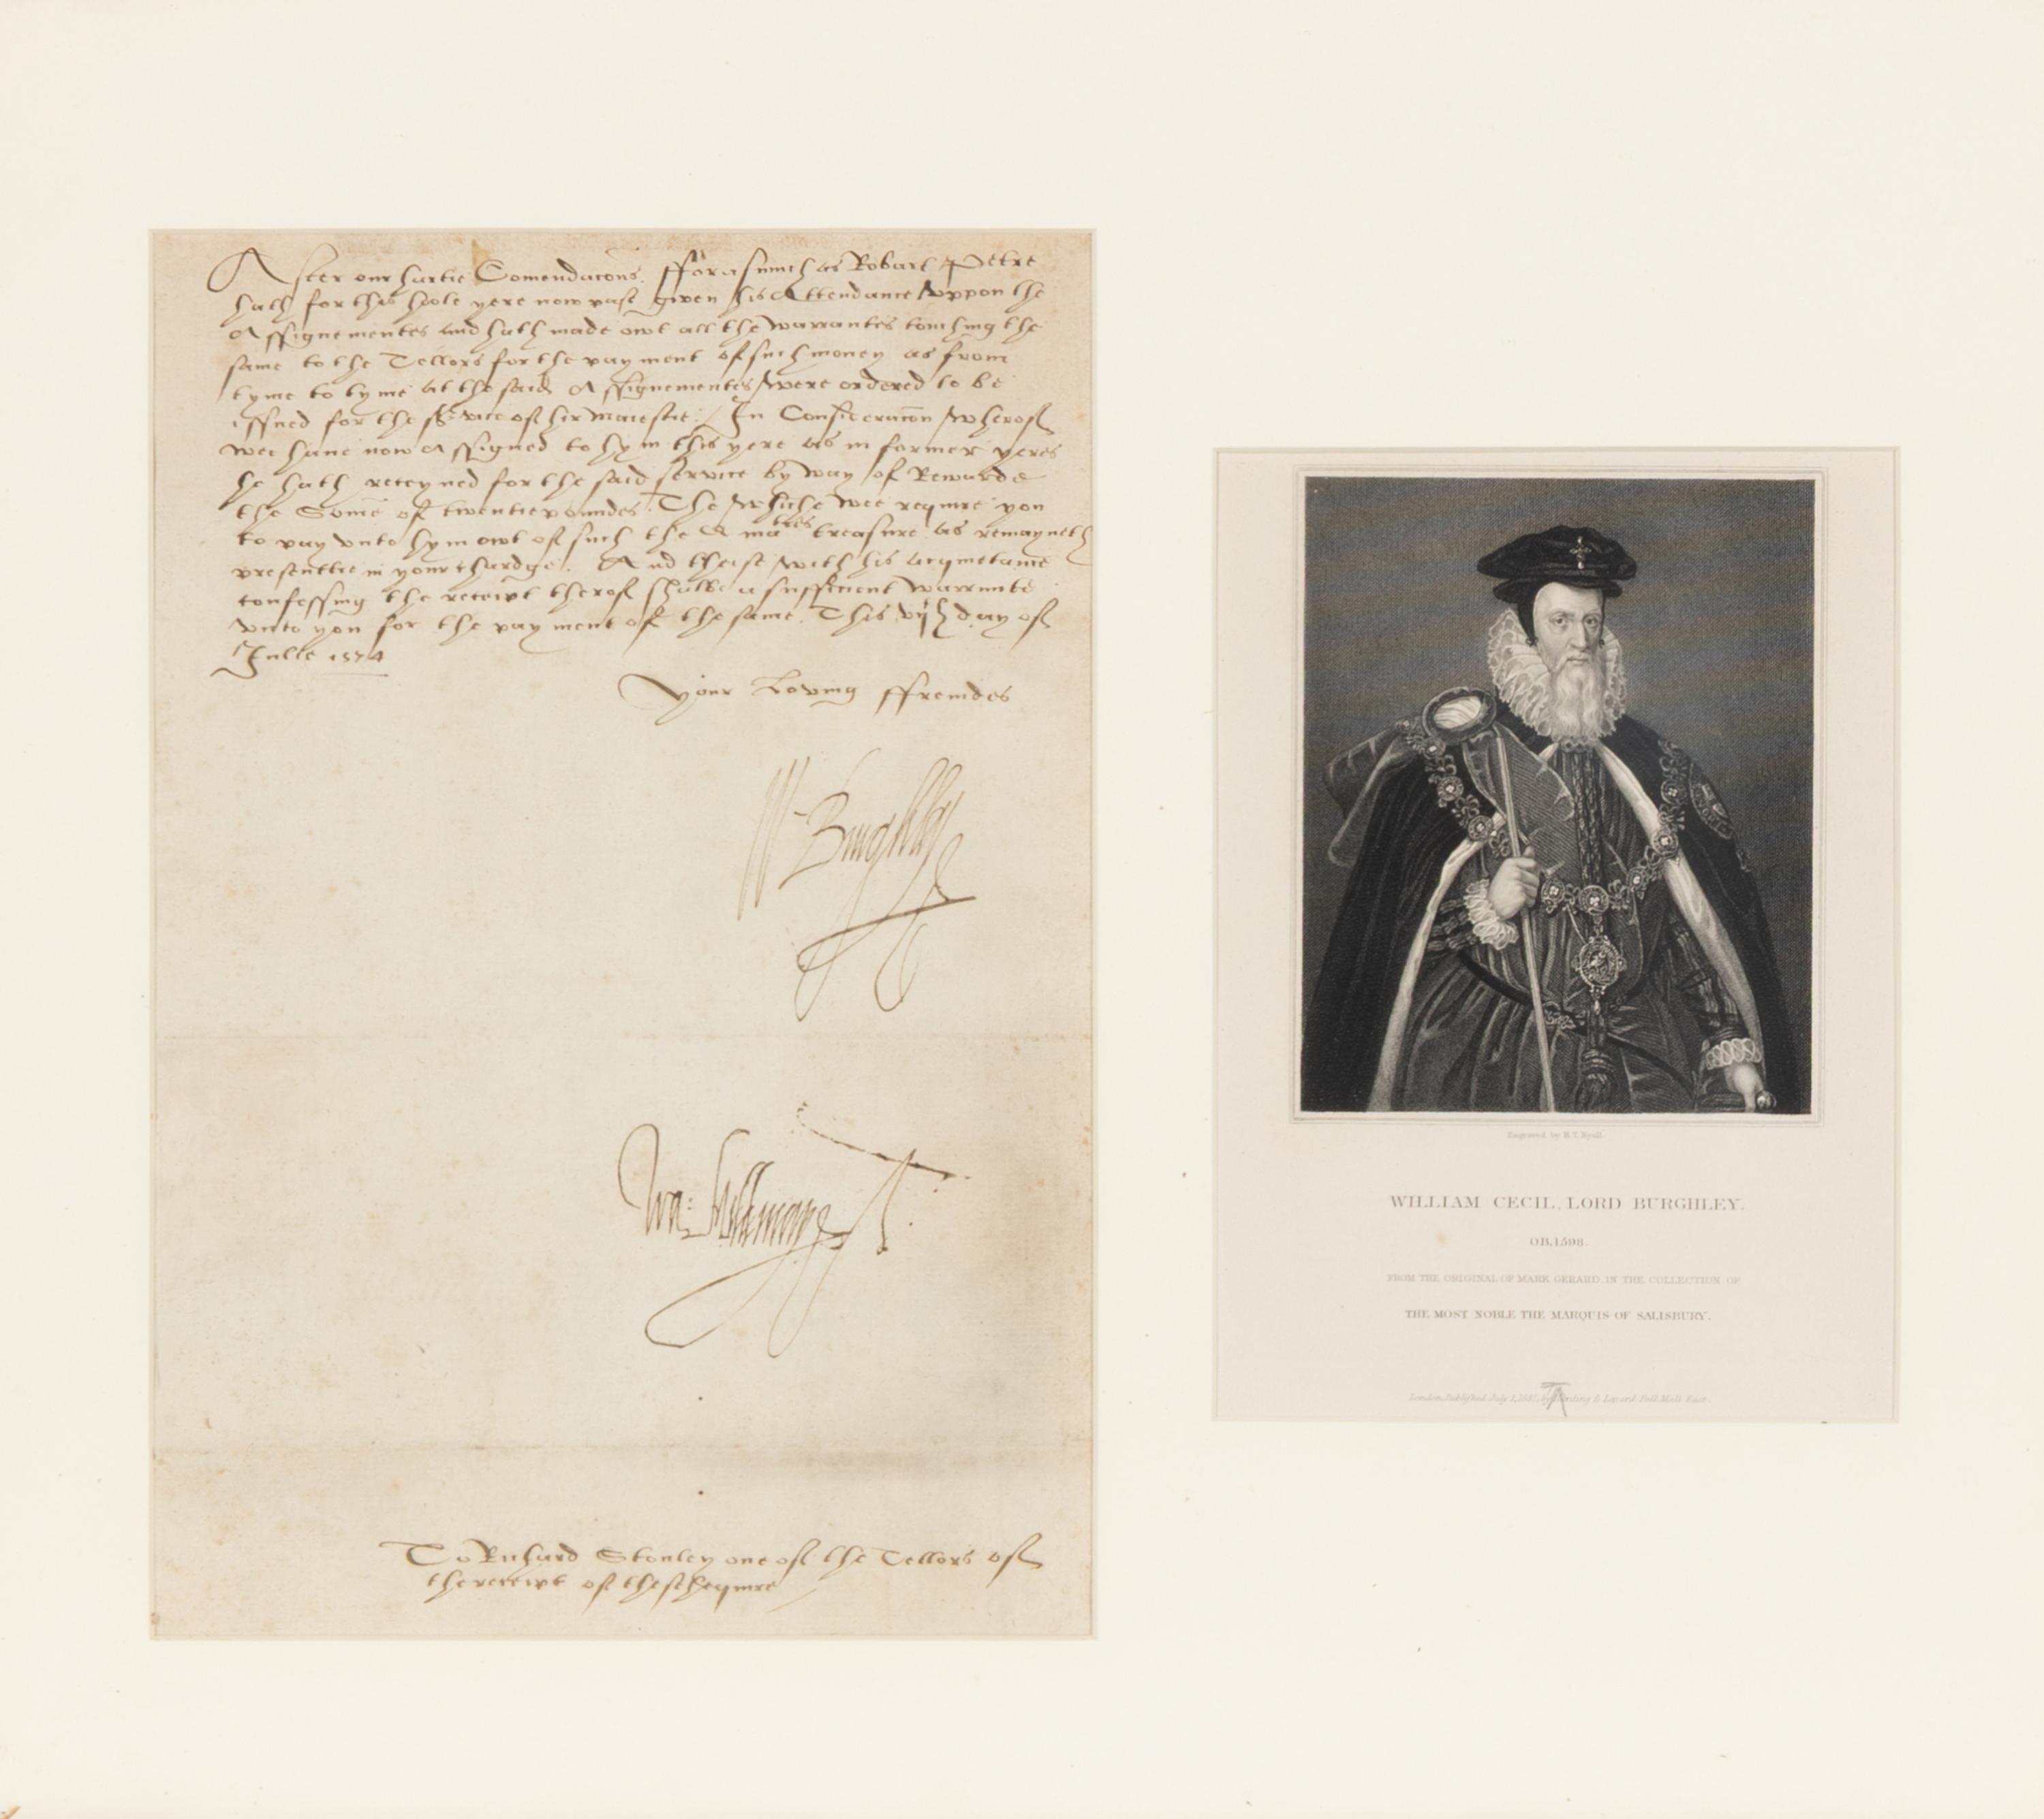 After our hartie Comendacons. fforasmuch as Robart Petre
hath for this hole yere now past given his Attendance uppon the
Assignementes and hath made owt all the warrantes touching the
same to the Tellors for the payment of such money as from
tyme to tyme at the said Assignementes were ordered to be
issued for the service of hir Maiestie. / In Consideracon wherof
wee have now Assigned to hym this yere as in former yeres
he hath receyved for the said service by way of Rewarde
the Some of twentie poundes. The whiche wee require you
to pay unto hym owt of such the Q matres treasure as remayneth
presentlie in your chardge. And theise with his acquietance
confessing the receipt therof shalbe a sufficient warrante
unto you for the payment of the same. This vijth day of
Julie 1574
your Loving ffreindes
W Burghley
Wa: Mildmay
To Richard Stonley one of the Tellors of
the receipt of thescheqiure
Engraved by H.T. Ryall.
WILLIAM CECIL, LORD BURGHLEY.
OB. 1598.
FROM THE ORIGINAL OF MARK GERARD, IN THE COLLECTION OF
THE MOST NOBLE THE MARQUIS OF SALISBURY.
London, Published July 1, by Harding & Lepard Pall Mall East.